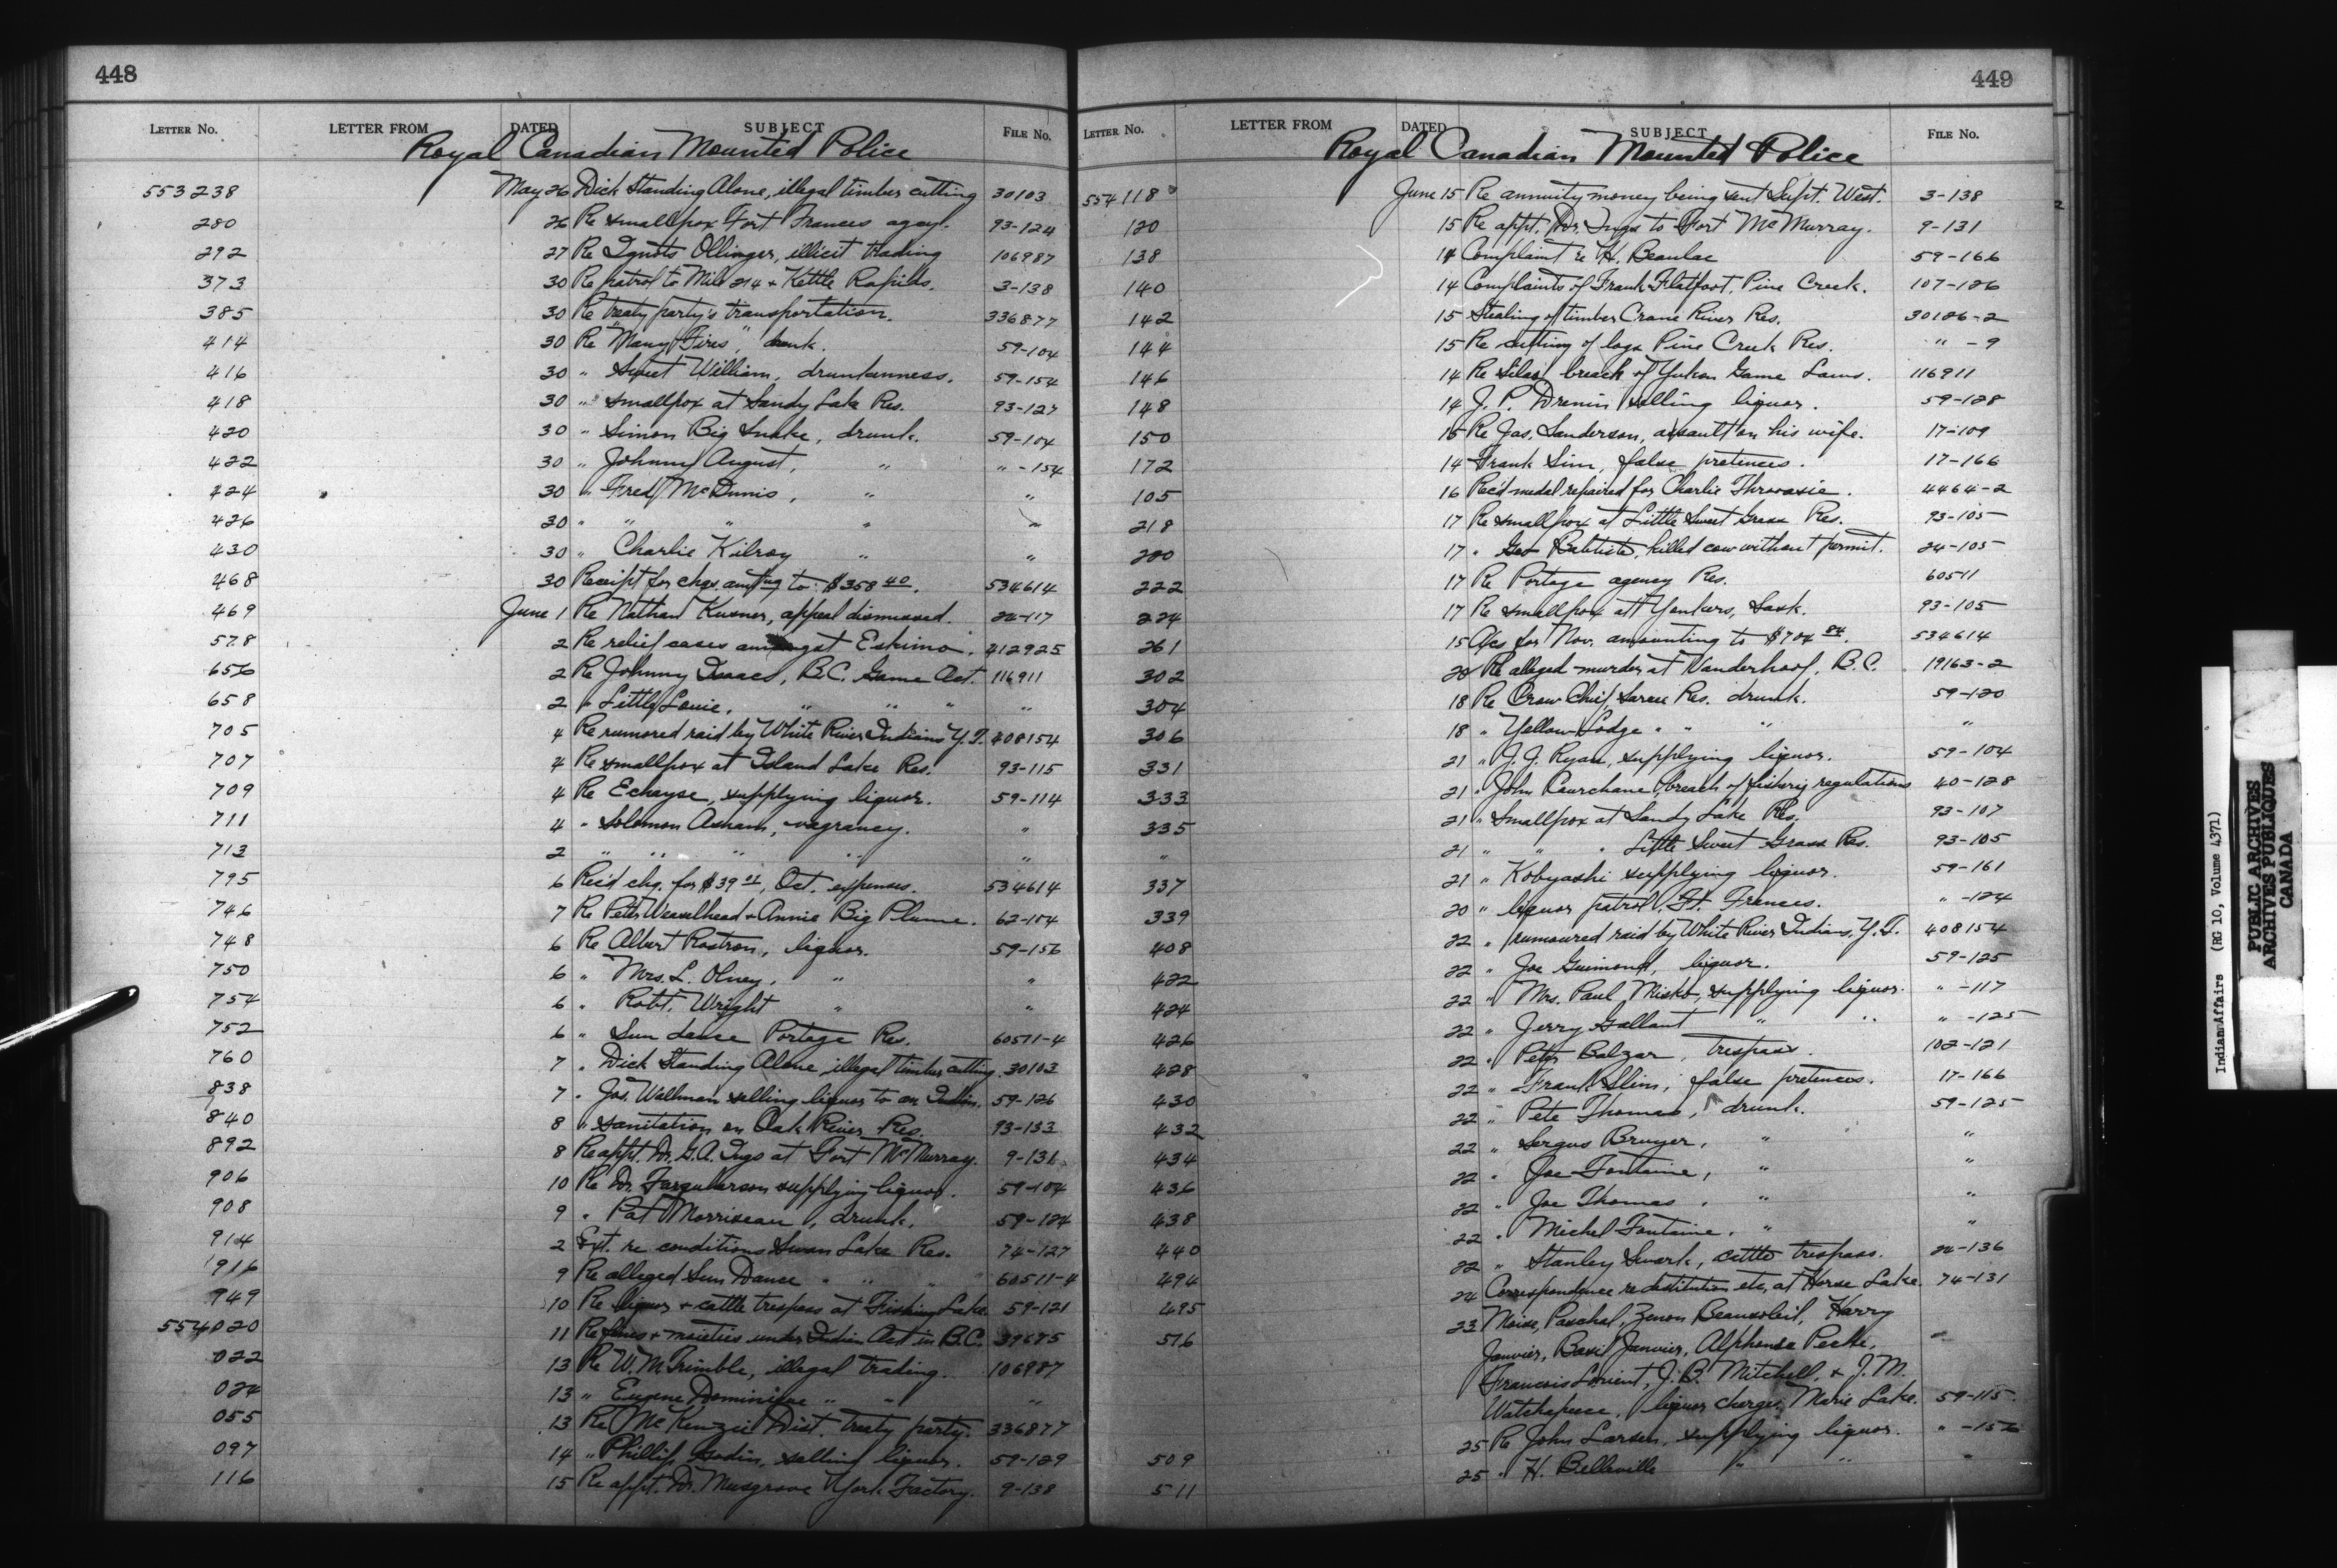 448
LETTER No. LETTER FROM DATED SUBJECT FILE No.
Royal Canadian Mounted Police
553238 May 26 Dick Standing Alone, illegal timber cutting 30103
280 26 Re smallpox Fort Frances agcy. 93-124
292 27 Re Ollinger, illicit trading 106987
373 30 Re patrol to Mile 214 + Kettle Rapids. 3-138
385 30 Re treaty party's transportation. 336877
414 30 Re "Many Fires", drunk. 59-104
416 30 " Sweet William, drunkenness. 59-154
418 30 " smallpox at Sandy Lake Res. 93-127
420 30 " Simon Big Snake, drunk. 59-104
422 30 " Johnny August, " " -154
424 30 " Fred McDunis, " "
426 30 " " " " "
430 30 " Charlie Kilroy " "
468 30 Receipt for chqs amtng to $358 40. 534614
469 June 1 Re Nathan Kusner, appeal dismissed. 24-117
578 2 Re relief cases amongst Eskimo. 412925
656 2 Re Johnny Isaacs, B.C. Game Act. 116911
658 2 " Little Louie. " " " "
705 4 Re rumored raid by White River Indians Y.T. 408154
707 4 Re smallpox at Island Lake Res. 93-115
709 4 Re Echayse, supplying liquor. 59-114
711 4 " Solomon Asham, vagrancy. "
713 2 " " " " "
795 6 Rec'd chq. for $39 21, Oct. expenses. 534614
746 7 Re Peter Weaselhead + Annie Big Plume. 62-104
748 6 Re Albert Rostron, liquor. 59-156
750 6 " Mrs. L. Olney, " "
754 6 " Robt. Wright " "
752 6 " Sun dance Portage Res. 60511-4
760 7 " Dick Standing Alone, illegal timber cutting. 30103
838 7 " Jos. Wallman selling liquor to an Indian. 59-126
840 8 " sanitation on Oak River Res. 93-133
892 8 Re appt. Dr. G.A. Ings at Fort McMurray. 9-131
906 10 Re Dr. Farquharson supplying liquor. 59-104
908 9 " Pat Morriseau, drunk. 59-124
914 2 Ext. re conditions Swan Lake Res. 74-127
916 9 Re alleged Sun Dance " " " " 60511-4
949 10 Re liquor + cattle trespass at Fishing Lake 59-121
554020 11 Re fines + moieties under Indian Act in B.C. 39675
022 13 Re W. M. Trimble, illegal trading. 106987
024 13 " Eugene Dominique " " "
055 13 Re McKenzie Dist. treaty party. 336877
097 14 " Phillip Godin, selling liquor. 59-129
116 15 Re appt. Dr. Musgrove York Factory. 9-138
449
LETTER No. LETTER FROM DATED SUBJECT FILE No.
Royal Canadian Mounted Police
554118 June 15 Re annuity money being sent Supt. West. 3-138
120 15 Re appt. Dr. Ings to Fort McMurray. 9-131
138 14 Complaint re H. Beaulac 59-166
140 14 Complaints of Frank Flatfoot, Pine Creek. 107-126
142 15 Stealing of timber Crane River Res. 30126-2
144 15 Re cutting of logs Pine Creek Res. " -9
146 14 Re Silas, breach of Yukon Game Laws. 116911
148 14 J. P. Drenin selling liquor. 59-128
150 15 Re Jas. Sanderson, assault on his wife. 17-109
172 14 Frank Sim, false pretences. 17-166
105 16 Rec'd medal repaired for Charlie Throvasie. 4464-2
218 17 Re smallpox at Little Sweet Grass Res. 93-105
220 17 " Geo Babtiste, killed cow without permit. 24-105
222 17 Re Portage agency Res. 60511
224 17 Re smallpox at Yonkers, Sask. 93-105
261 15 A/cs for Nov. amounting to $704 84. 534614
302 20 Re alleged murder at Vanderhoof, B.C. 19163-2
304 18 Re Crow Chief, Sarcee Res. drunk. 59-120
306 18 " Yellow Lodge " " " "
331 21 " J. J. Ryan, supplying liquor. 59-104
333 21 " John Courchane, breach of fishing regulations 40-128
335 21 " Smallpox at Sandy Lake Res. 93-107
" 21 " " " Little Sweet Grass Res. 93-105
337 21 " Kobyashi supplying liquor. 59-161
339 20 " liquor patrol, Ft. Frances. " -124
408 22 " rumoured raid by White River Indians, Y.T. 408154
422 22 " Joe Guimond, liquor. 59-125
424 22 " Mrs. Paul Misko, supplying liquor. " -117
426 22 " Jerry Gallant " " " -125
428 22 " Peter Balzar, trespass. 102-121
430 22 " Frank Slim, false pretences. 17-166
432 22 " Pete Thomas, drunk. 59-125
434 22 " Sergus Bruyer, " "
436 22 " Joe Fontaine, " "
438 22 " Joe Thomas, " "
440 22 " Michel Fontaine, " "
494 22 " Stanley Swark, cattle trespass. 24-136
495 24 Correspondence re destitution etc. at Horse Lake. 74-131
516 23 Moise, Paschal, Zenon Beausoleil, Harry
Janvier, Basil Janvier, Alphonse Peche,
Francois Lorient, J. B. Mitchell, + J. M.
Watchapeece, liquor charges, Marie Lake. 59-115
509 25 Re John Larsen, supplying liquor. " -156
511 25 " H. Belleville " " "
Indian Affairs (RG 10, Volume 4371)
PUBLIC ARCHIVES
ARCHIVES PUBLIQUES
CANADA